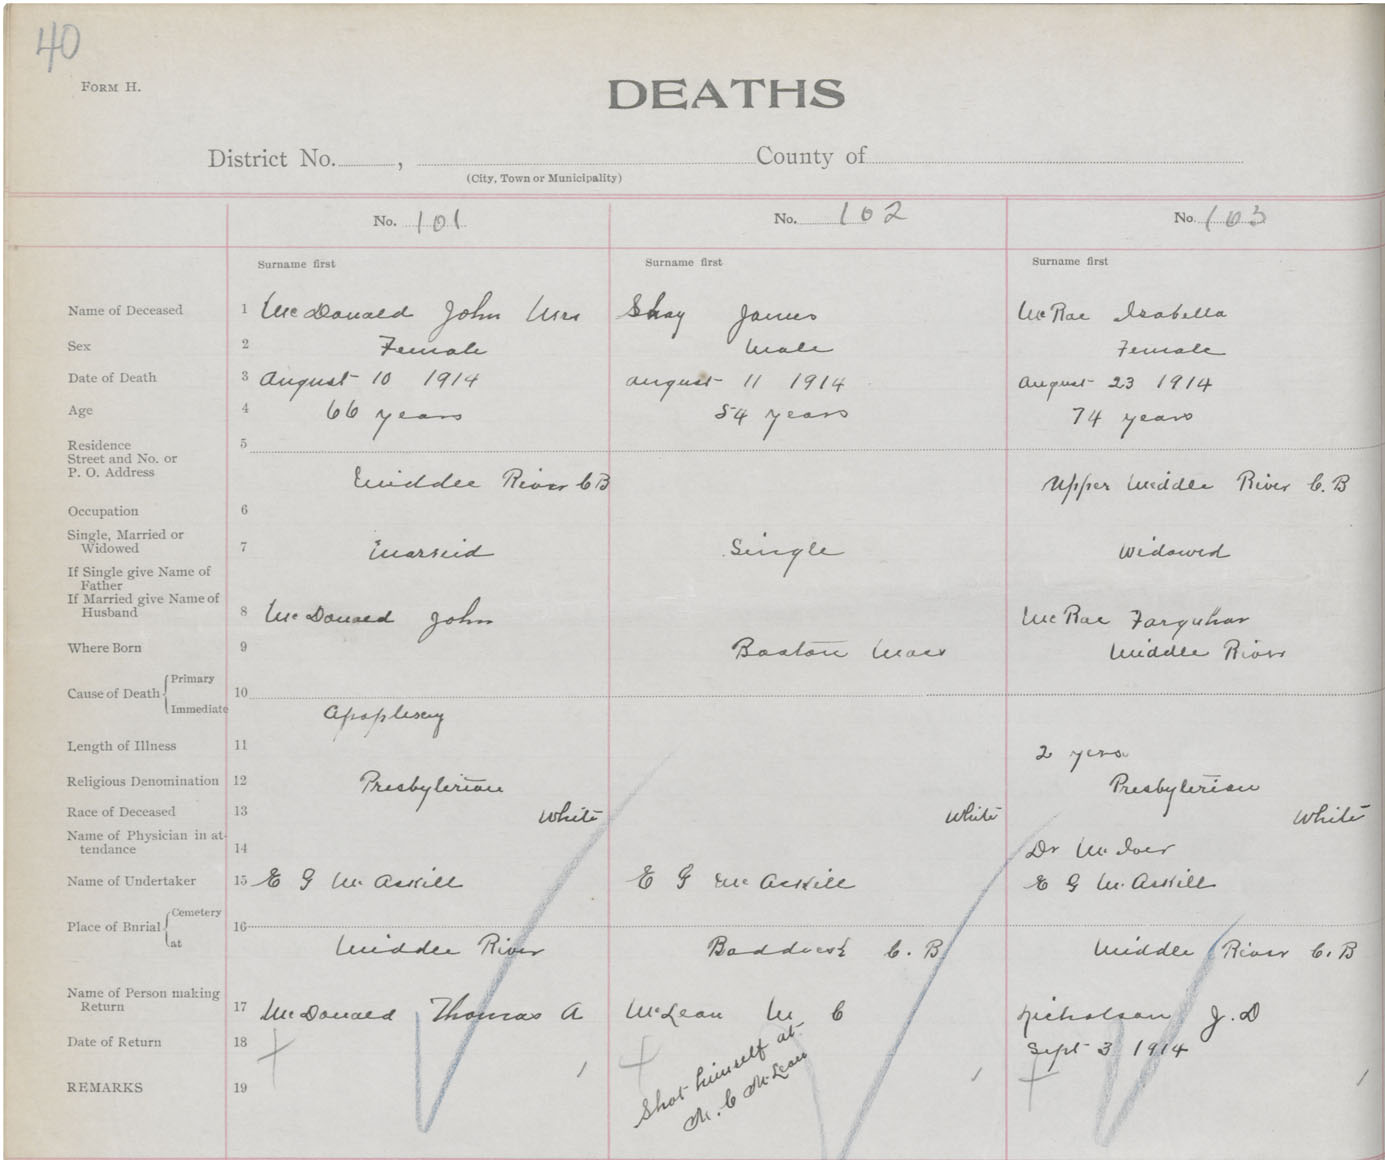 40
FORM H.
DEATHS
District No. , County of
(City, Town or Municipality)
No. 101 No. 102 No. 103
Surname first Surname first Surname first
Name of Deceased 1 McDonald John Mrs Shay James McRae Isabella
Sex 2 Female Male Female
Date of Death 3 August 10 1914 August 11 1914 August 23 1914
Age 4 66 years 54 years 74 years
Residence 5
Street and No. or
P. O. Address Middle River C B Upper Middle River C. B
Occupation 6
Single, Married or
Widowed 7 Marreid Single Widowed
If Single give Name of
Father
If Married give Name of
Husband 8 McDonald John McRae Farquhar
Where Born 9 Boston Mass Middle River
Cause of Death Primary 10
Immediate Apoplexy
Length of Illness 11 2 years
Religious Denomination 12 Presbyterian Presbyterian
Race of Deceased 13 White White White
Name of Physician in at-
tendance 14 Dr McIver
Name of Undertaker 15 E G McAskill E G McAskill E G McAskill
Place of Burial Cemetery 16
at Middle River Baddeck C. B Middle River C. B
Name of Person making
Return 17 McDonald Thomas A McLean M C Nicholson J. D
Date of Return 18 Sept 3 1914
REMARKS 19 Shot himself at
M. C McLean